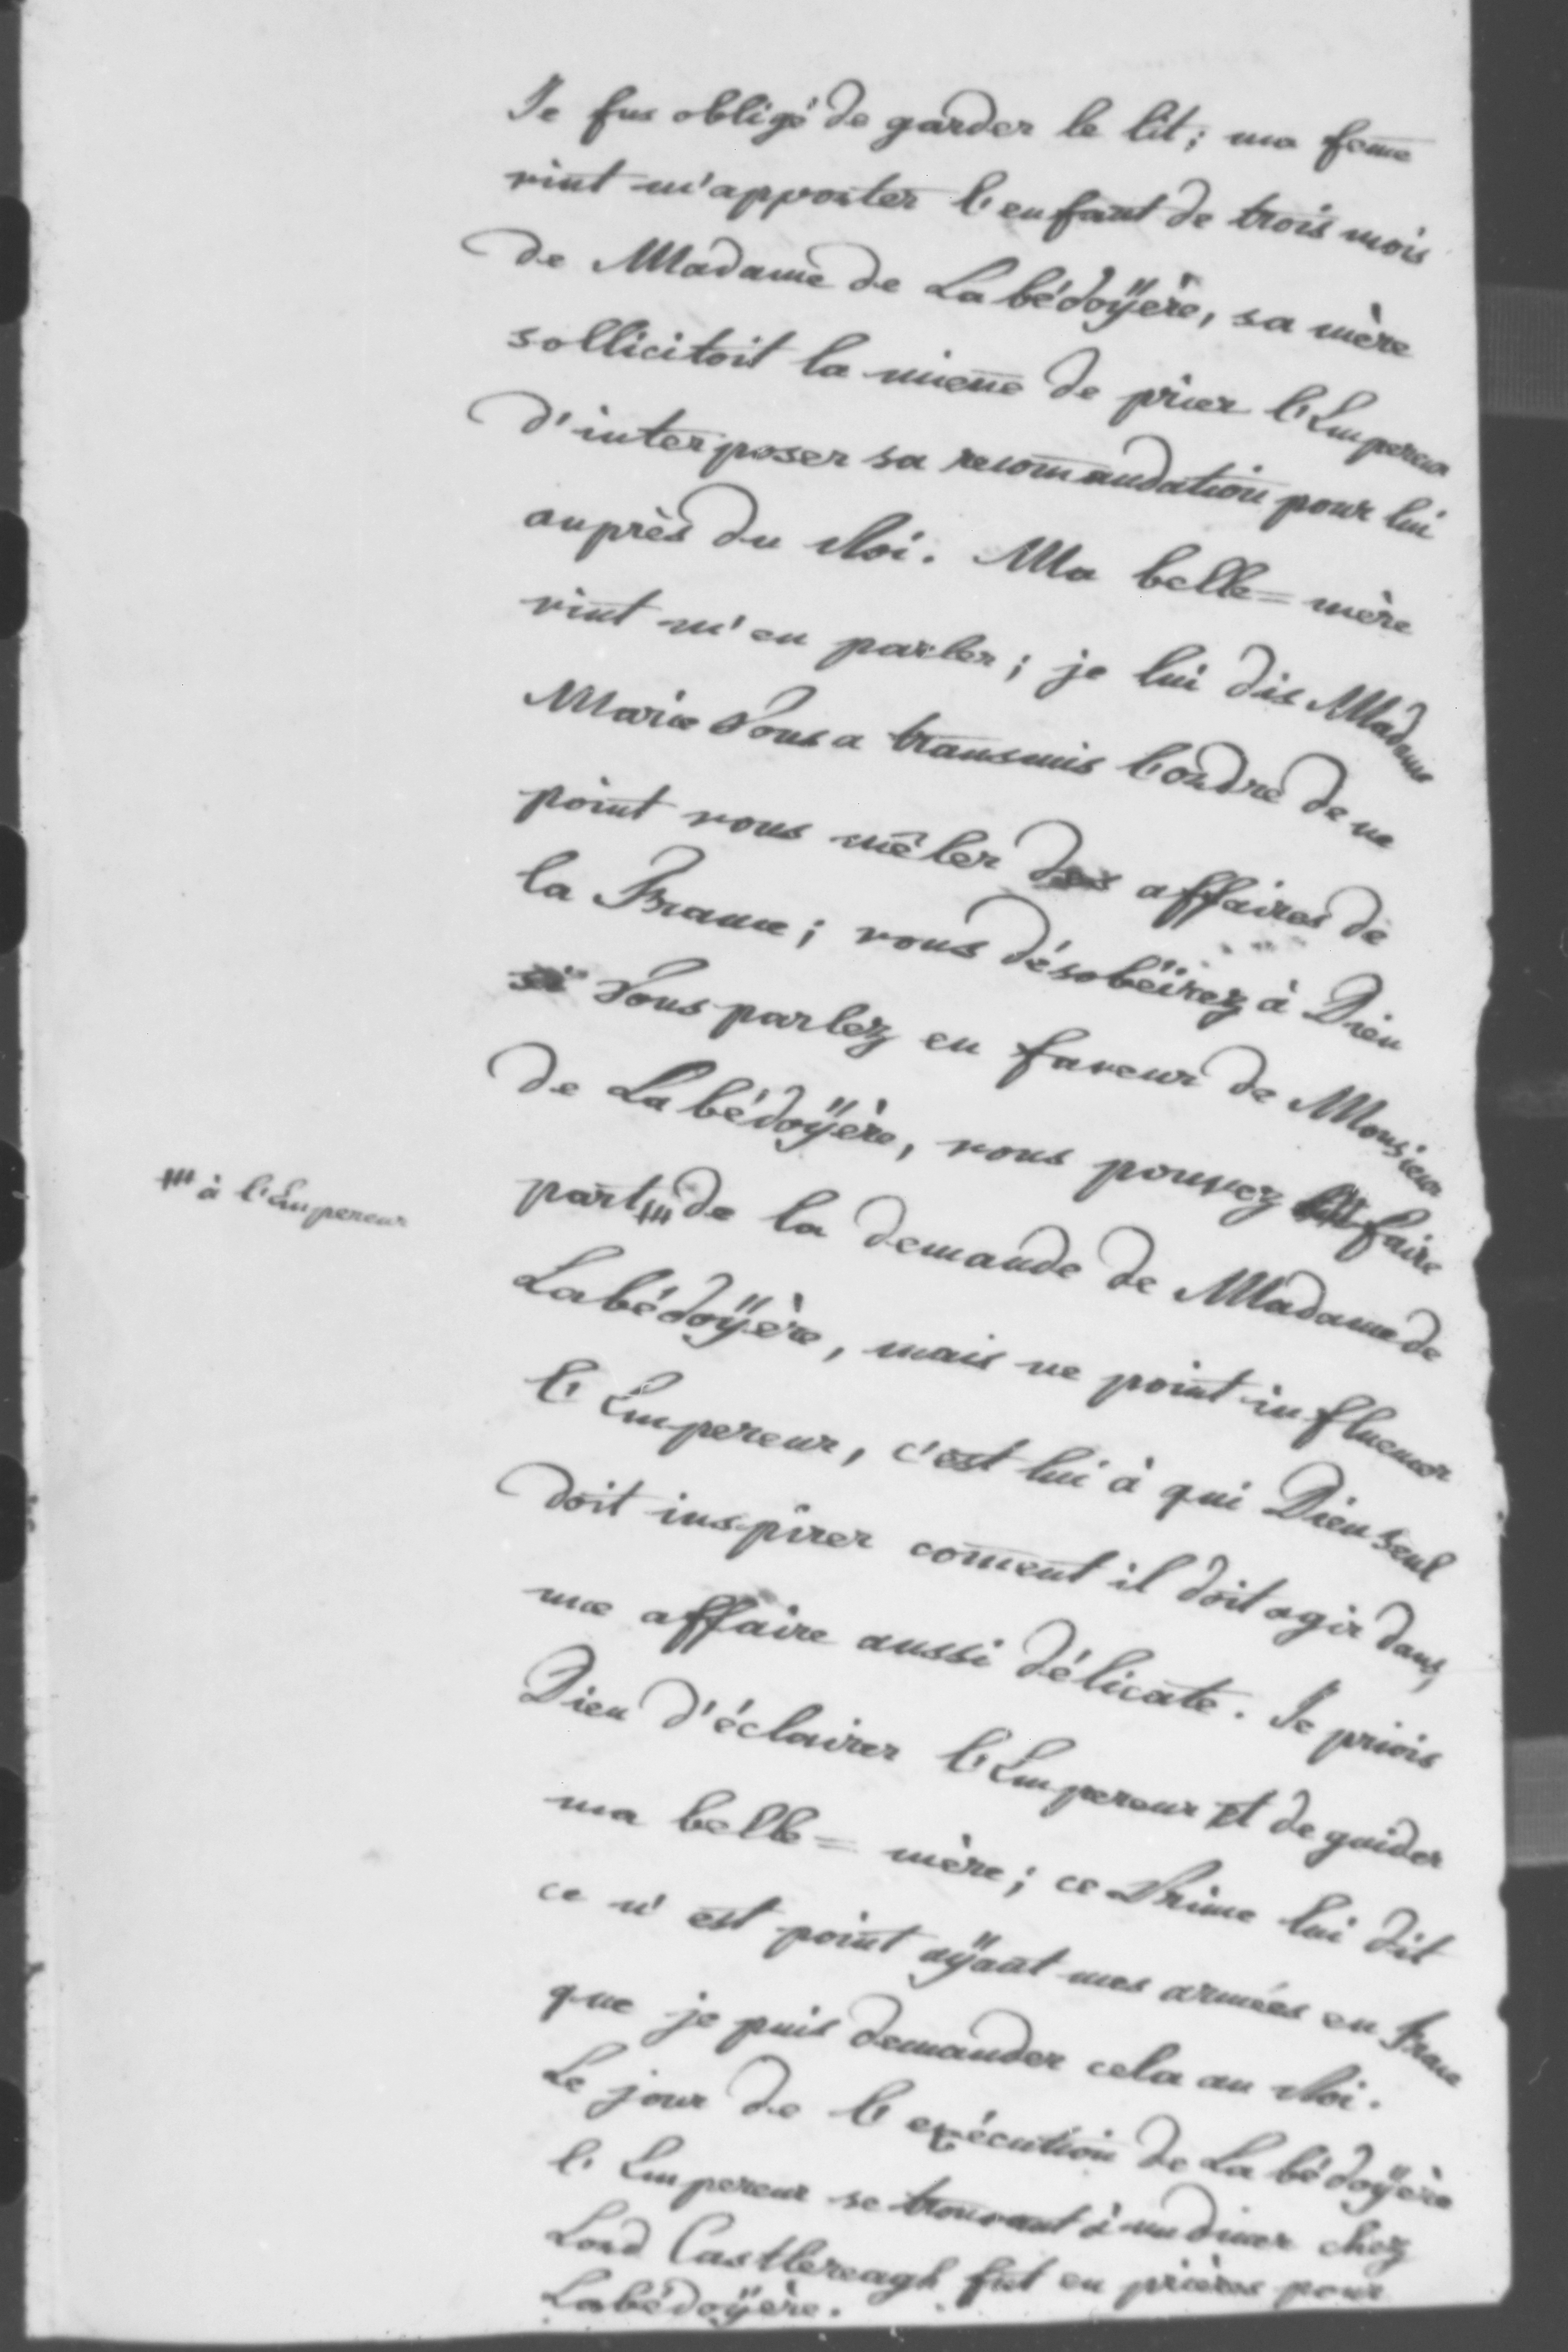 Je fus obligé de garder le lit; ma fem̄e
vint m'apporter l'enfant de trois mois
de Madame de Labédoÿère, sa mère
sollicitoit la mien̄e de prier l'Empereur
d'interposer sa recom̄andation pour lui
auprès du Roi. Ma belle=mère
vint m'en parler; je lui dis Madame
Marie Vous a transmis l'ordre de ne
point vous mêler des affaires de
la France; vous désobéirez à Dieu
si Vous parlez en faveur de Monsieur
de Labédoÿère, vous pouvez faire
part de la demande de Madame de
à l'Empereur
Labédoÿère, mais ne point influencer
l'Empereur, c'est lui à qui Dieu seul
doit inspirer com̄ent il doit agir dans
une affaire aussi délicate. Je priois
Dieu d'éclairer l'Empereur et de guider
ma belle=mère; ce Prince lui dit
ce n'est point aÿant mes armées en France
que je puis demander cela au Roi.
Le jour de l'exécution de Labédoÿère
l'Empereur se trouvant à un diner chez
Lord Castlereagh fut en prières pour
Labédoÿère.